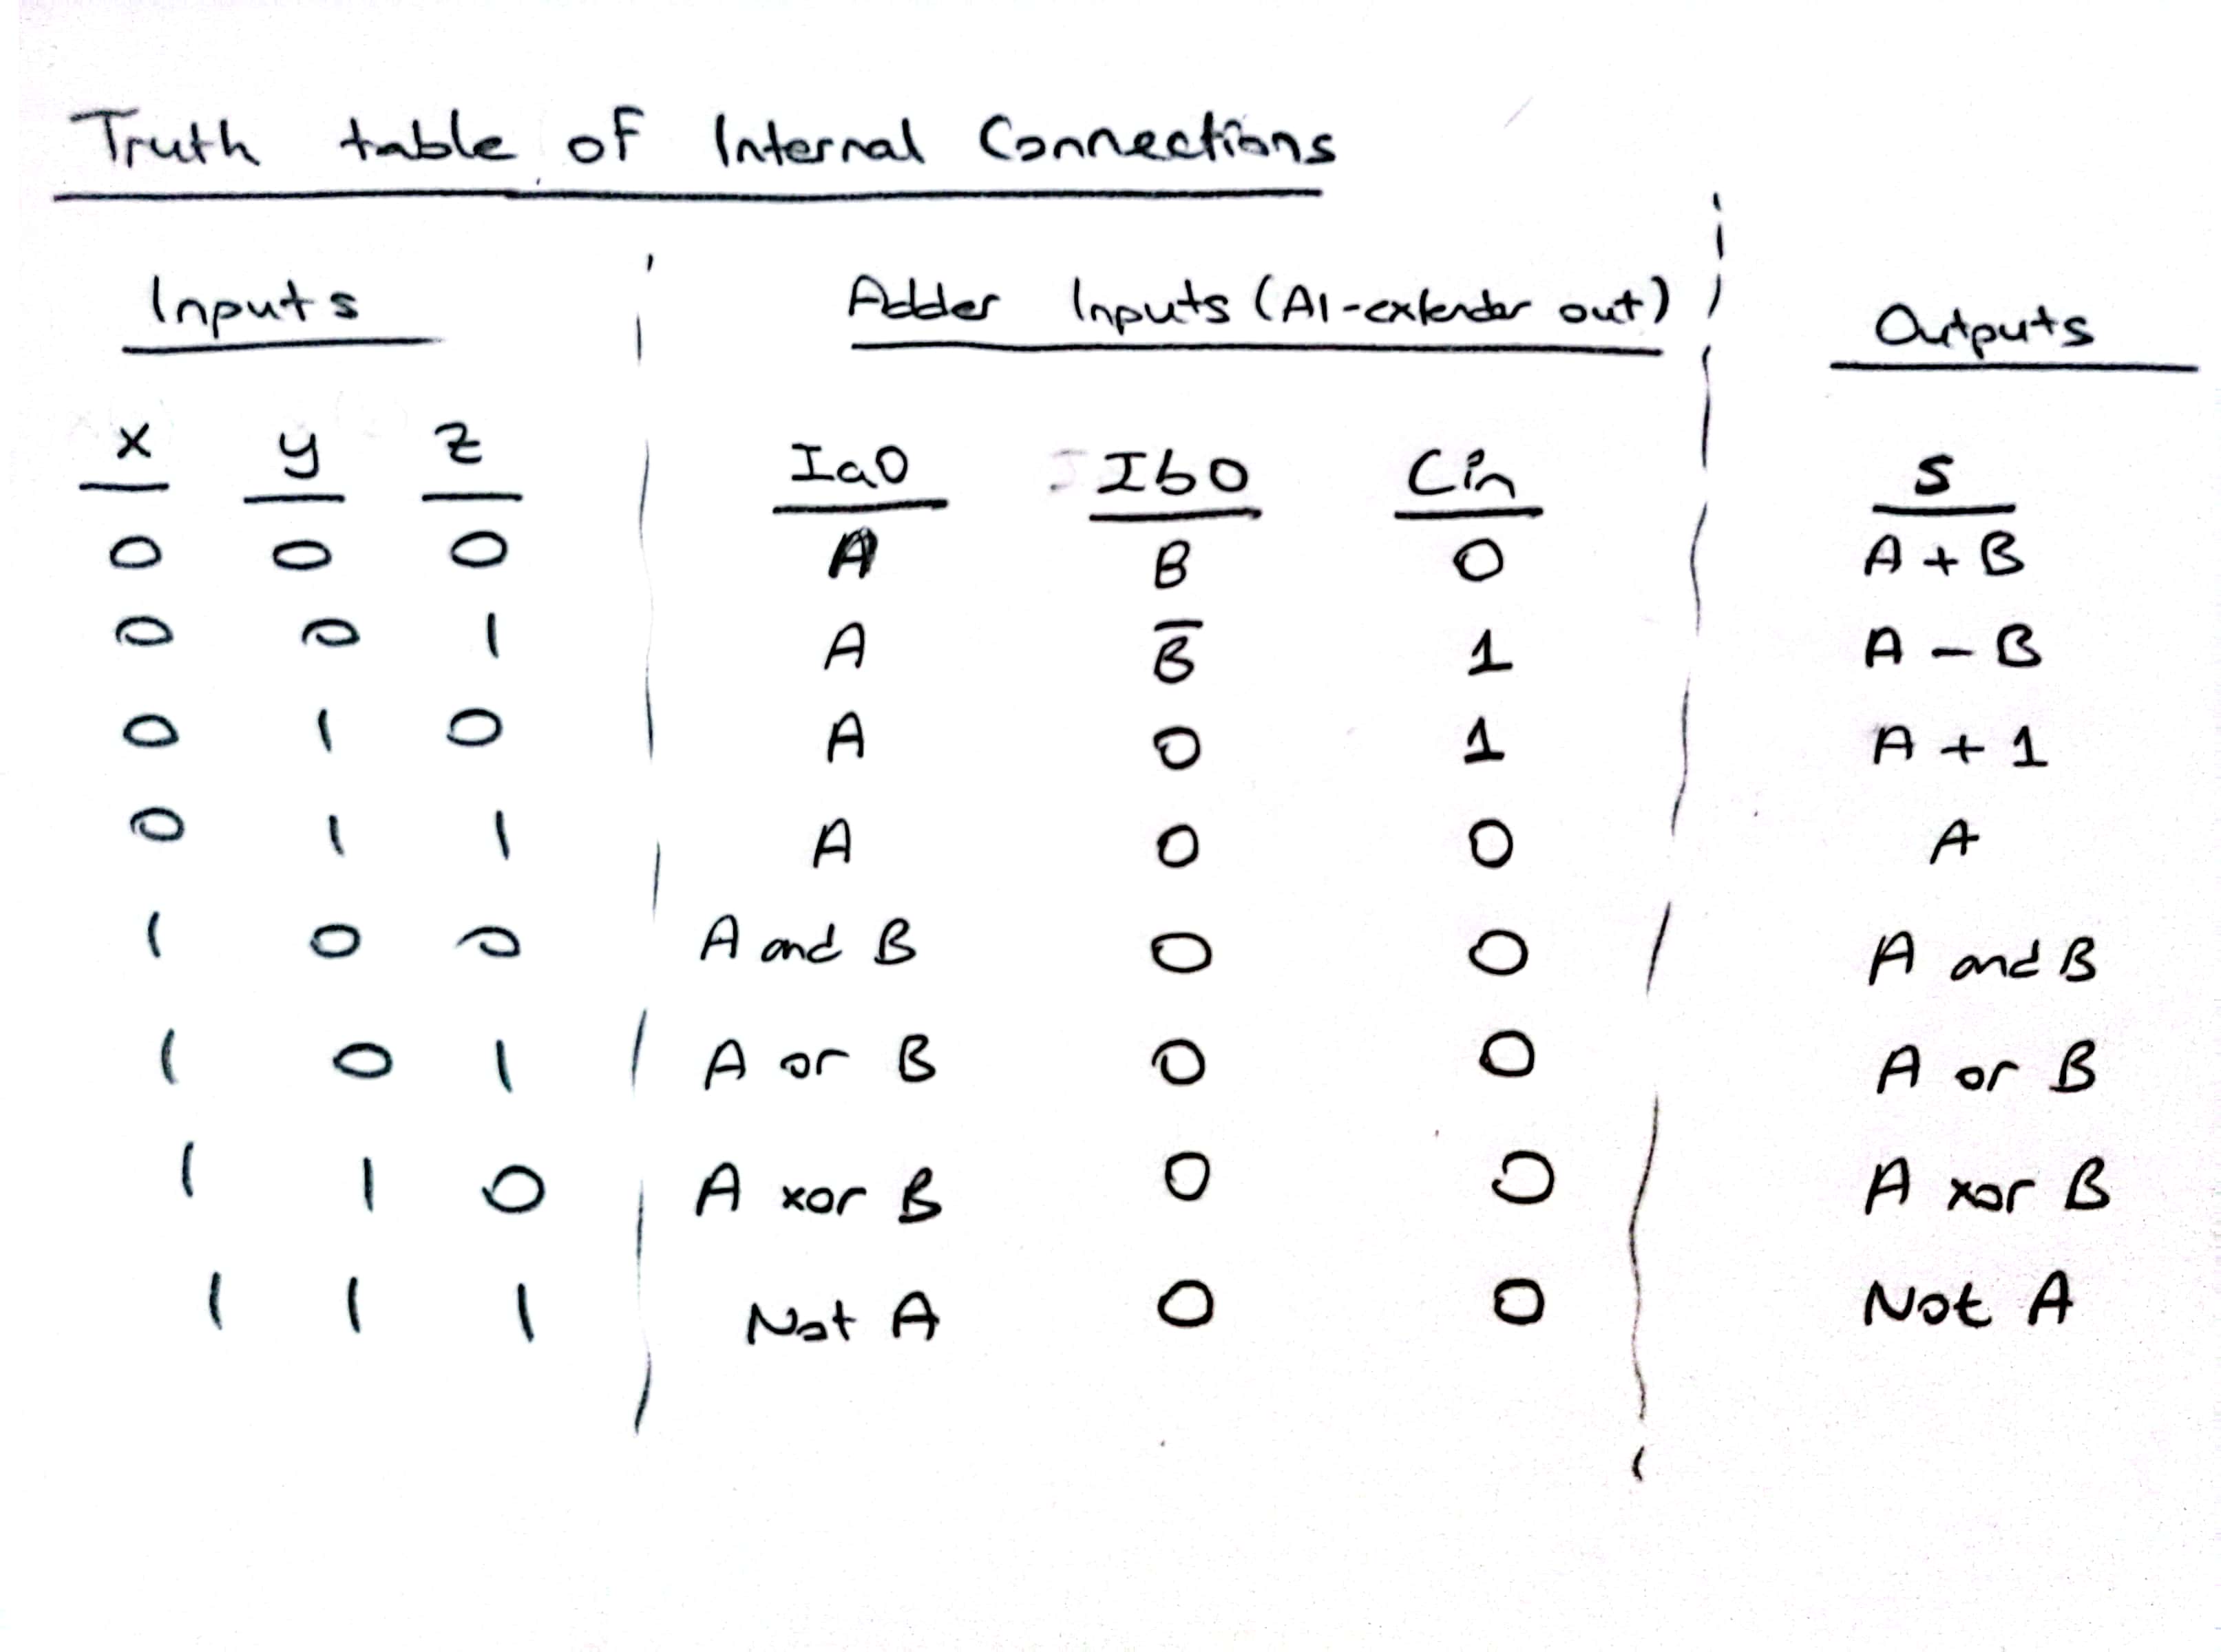 Truth table of Internal Connections
Inputs Adder Inputs (Al-extender out) Outputs
x y z Ia0 Ib0 Cin S
0 0 0 A B 0 A + B
0 0 1 A B̅ 1 A - B
0 1 0 A 0 1 A + 1
0 1 1 A 0 0 A
1 0 0 A and B 0 0 A and B
1 0 1 A or B 0 0 A or B
1 1 0 A xor B 0 0 A xor B
1 1 1 Not A 0 0 Not A